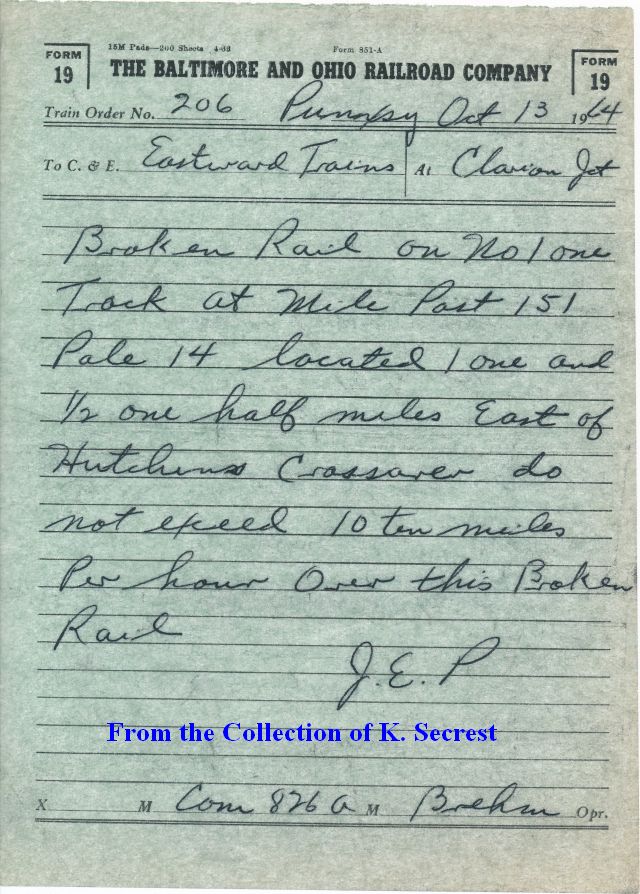 FORM 19
15M Pads—200 Sheets 4-63 Form 851-A
THE BALTIMORE AND OHIO RAILROAD COMPANY
FORM 19
Train Order No. 206 Punxsy Oct 13 1964
To C. & E. Eastward Trains At Clarion Jct
Broken Rail on No 1 one
Track at Mile Post 151
Pole 14 located 1 one and
1/2 one half miles East of
Hutchins Crossover do
not exceed 10 ten miles
Per hour Over this Broken
Rail
J.E.P
From the Collection of K. Secrest
X M Com 826 A M Brehm Opr.